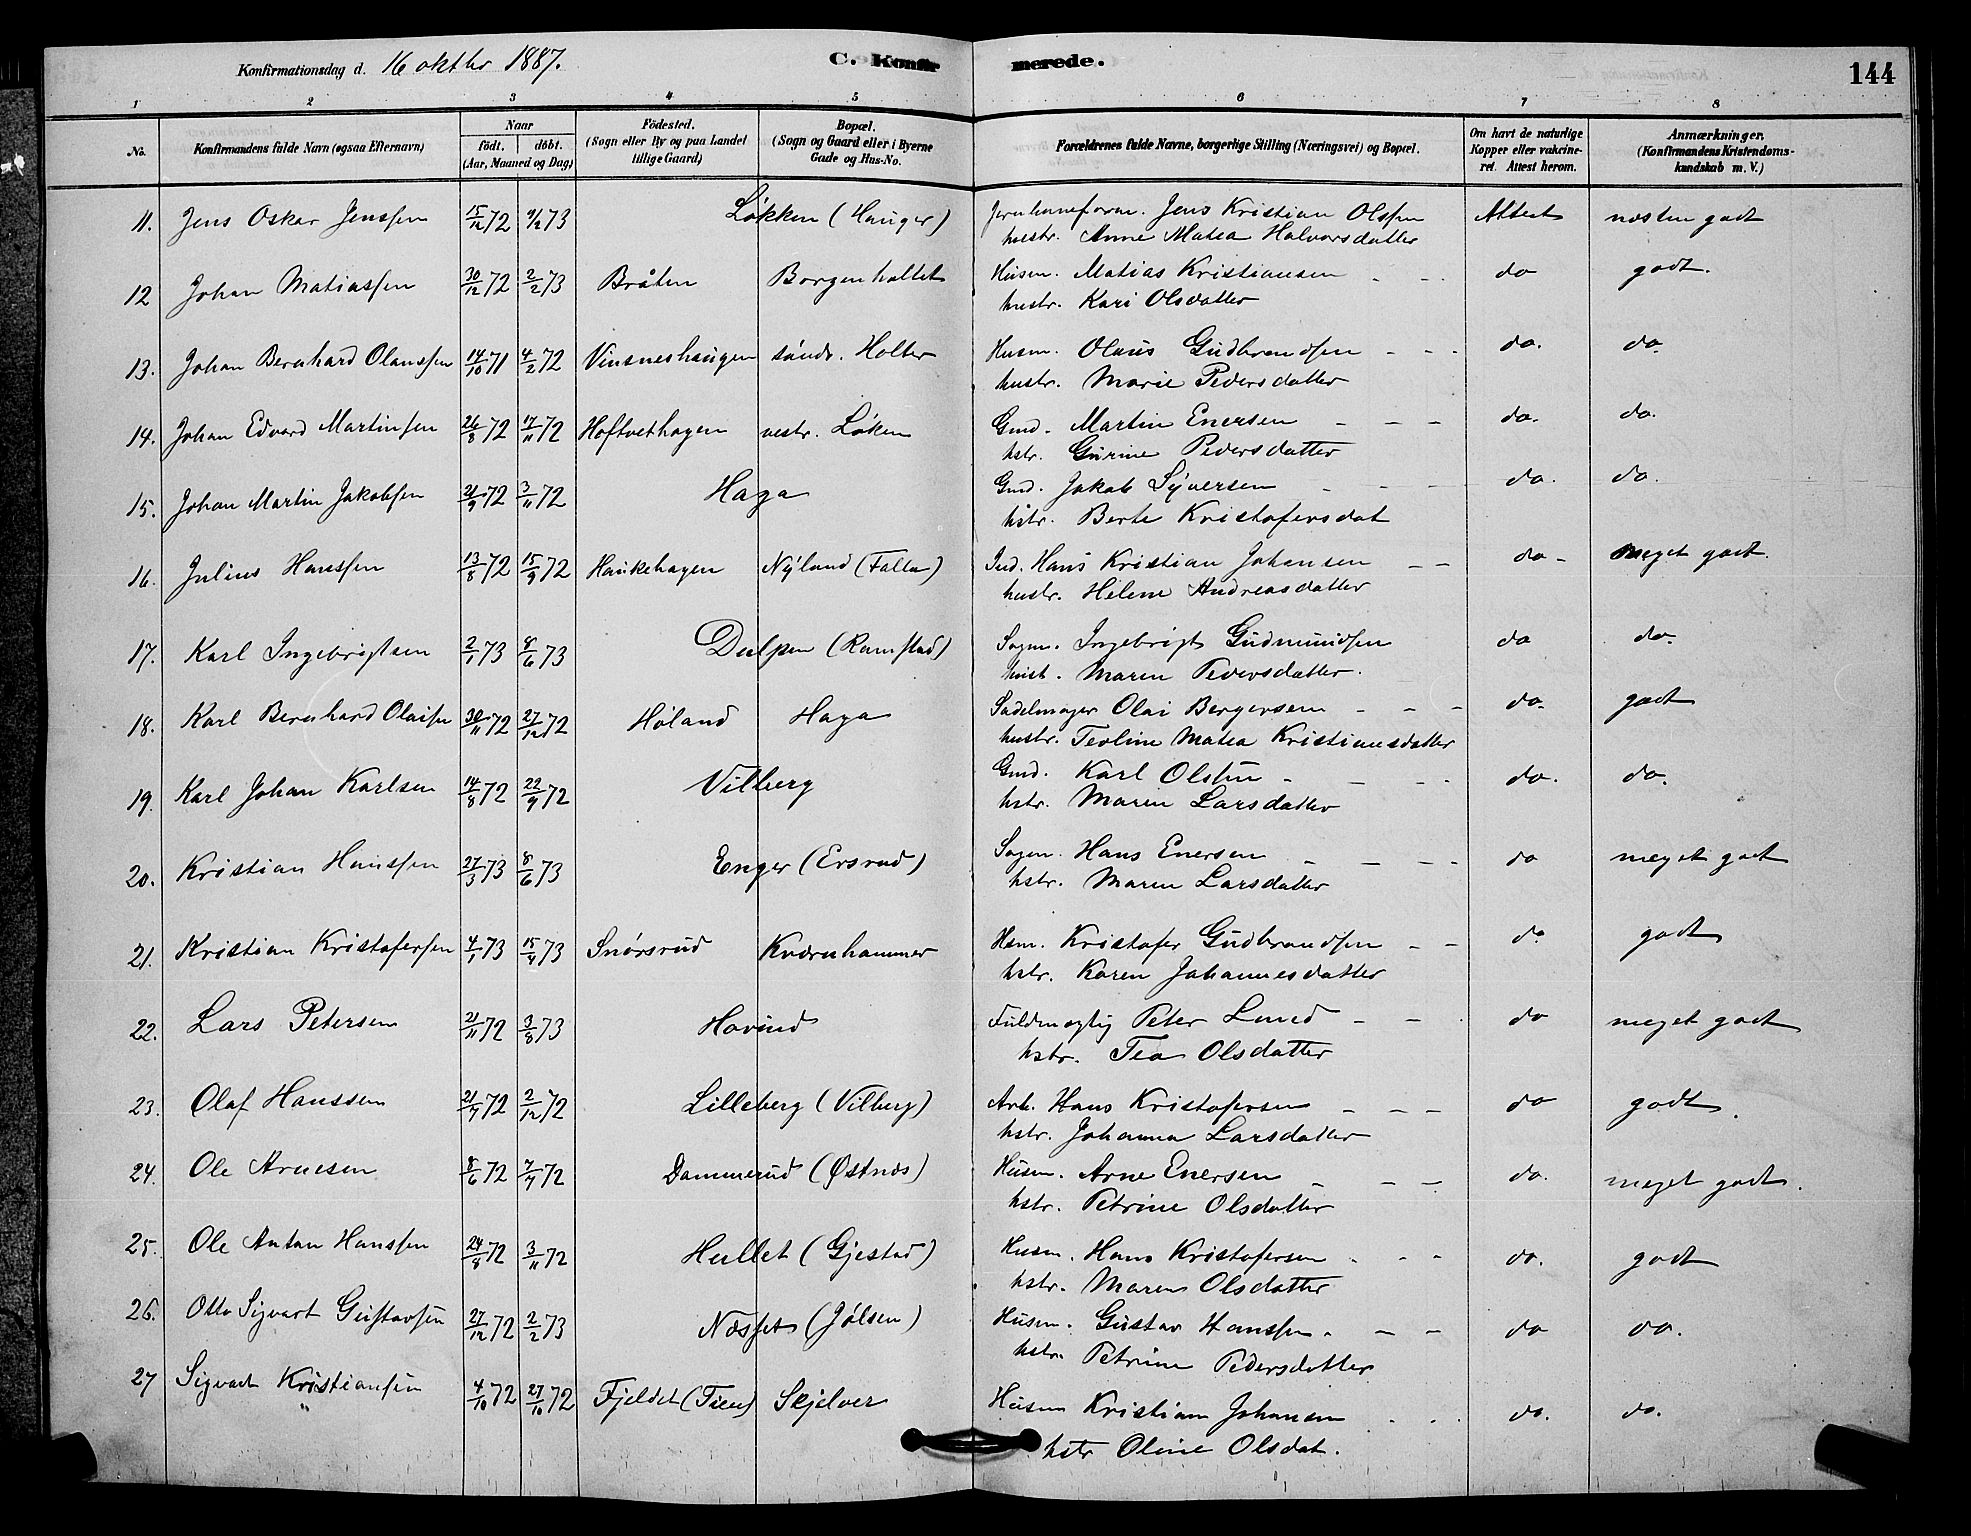 Konfirmationsdag d. 16 oktbr 1887. C. Konfirmerede. 144
1 2 3 4 5 6 7 8
No. Konfirmandens fulde Navn (ogsaa Efternavn) Naar födt. döbt. (Aar, Maaned og Dag) Födested. (Sogn eller By og paa Landet tillige Gaard) Bopæl. (Sogn og Gaard eller i Byerne Gade og Hus-No. Forældrenes fulde Navne, borgerlige Stilling (Næringsvei) og Bopæl. Om havt de naturlige Kopper eller vakcineret. Attest herom. Anmærkninger. (Konfirmandens Kristendomskundskab m. V.)
11. Jens Oskar Jenssen 15/12 72 9/2 73 Løkken (Hauger) Jens Kristian Olssen Attest næsten godt
hustr. Anne Matea Halvorsdatter
12 Johan Matiassen 30/12 72 2/2 73 Bråten Borgenholtet Husm. Matias Kristiansen - - do godt.
hustr. Kari Olsdatter
13. Johan Bernhard Olaussen 14/10 71 4/2 72 Vinsneshaugen søndr. Holter Husm. Olaus Gudbrandsen - - - do. do.
hustr. Marie Pedersdatter
14. Johan Edvard Martinsen 26/8 72 17/11 72 Hoftvethagen vestr. Løken Gmd. Martin Enersen - - - do. do.
hstr. Gurine Pedersdatter
15. Johan Martin Jakobsen 21/9 72 3/11 72 Haga Gmd. Jakob Syversen - - - do. do.
hstr. Berte Kristofersdat
16. Julius Hanssen 13/8 72 15/9 72 Haukehagen Nyland (Falla) Ind. Hans Kristian Johansen - - do - meget godt.
hustr. Helene Andreasdatter
17. Karl Ingebrigtsen 2/1 73 8/6 73 Dulpen (Ramstad) Sagm. Ingebrigt Gudmundsen do do.
hust. Maren Pedersdatter.
18. Karl Bernhard Olaisen 30/11 72 27/12 72 Høland Haga Sadelmager Olai Bergersen - - - do. godt
hustr. Teoline Matea Kristiansdatter
19. Karl Johan Karlsen 14/8 72 22/9 72 Vilberg Gmd. Karl Olsen - - - - do. do.
hstr. Maren Larsdatter
20. Kristian Hanssen 27/3 73 8/6 73 Enger (Ersrud) Sagm. Hans Enersen - - - - do meget godt
hstr. Maren Larsdatter
21. Kristian Kristofersen 4/1 73 15/4 73 Snørsrud Kværnhammer Hsm. Kristofer Gudbrandsen - - do godt
hstr. Karen Johannesdatter
22. Lars Petersen 21/11 72 3/8 73 Hovind Fuldmægtig Peter Lund - - . do meget godt
hstr. Tea Olsdatter
23. Olaf Hanssen 21/7 72 2/12 72 Lilleberg (Vilberg) Arb. Hans Kristofersen - - - do godt.
hstr. Johanna Larsdatter
24. Ole Arnesen 8/6 72 7/7 72 Dammerud (Østnæs) Husm. Arne Enersen - - - do. meget godt.
hstr. Petrine Olsdatter
25. Ole Anton Hanssen 24/8 72 3/11 72 Hullet (Gjestad) Husm. Hans Kristofersen - - - do. godt
hstr. Maren Olsdatter
26. Otto Sigvart Gustavsen 27/12 72 2/2 73 Næsset (Jølsen) Husm. Gustav Hanssen - - - do do.
hstr. Petrine Pedersdatter
27 Sigvart Kristiansen 4/10 72 27/10 72 Fjeldet (Tien) Skjelver Husm Kristian Johansen - - . do. do.
hstr Oline Olsdat.